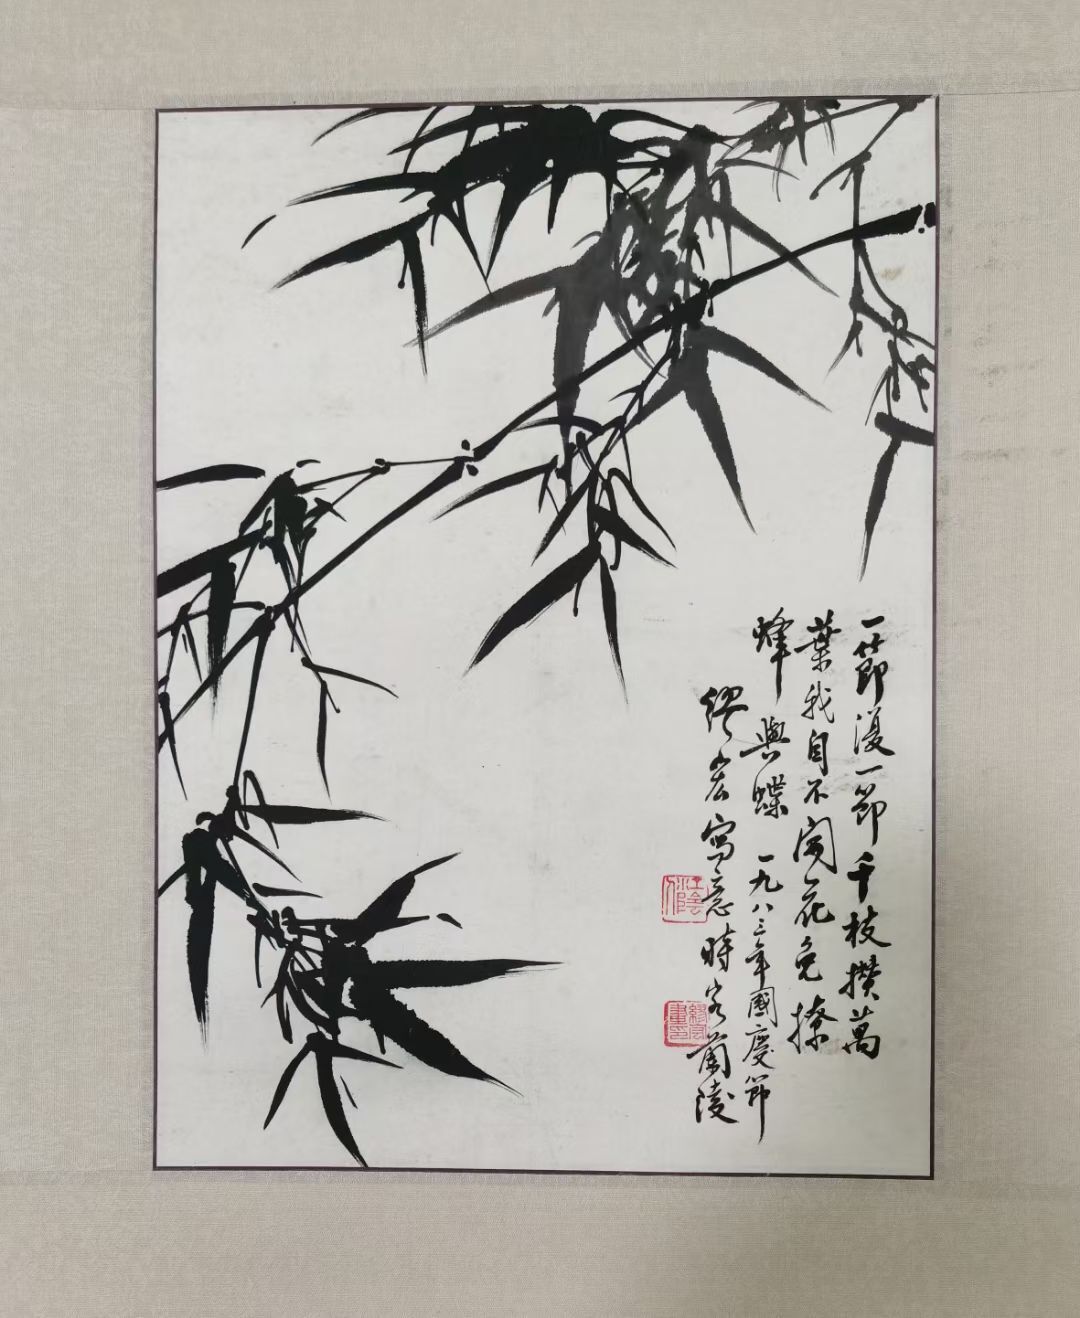 一節復一節千枝攢萬
葉我自不開花免撩
蜂與蝶 一九八三年國慶節
繆宏寫意時客蘭陵
江陰人
繆宏畫印